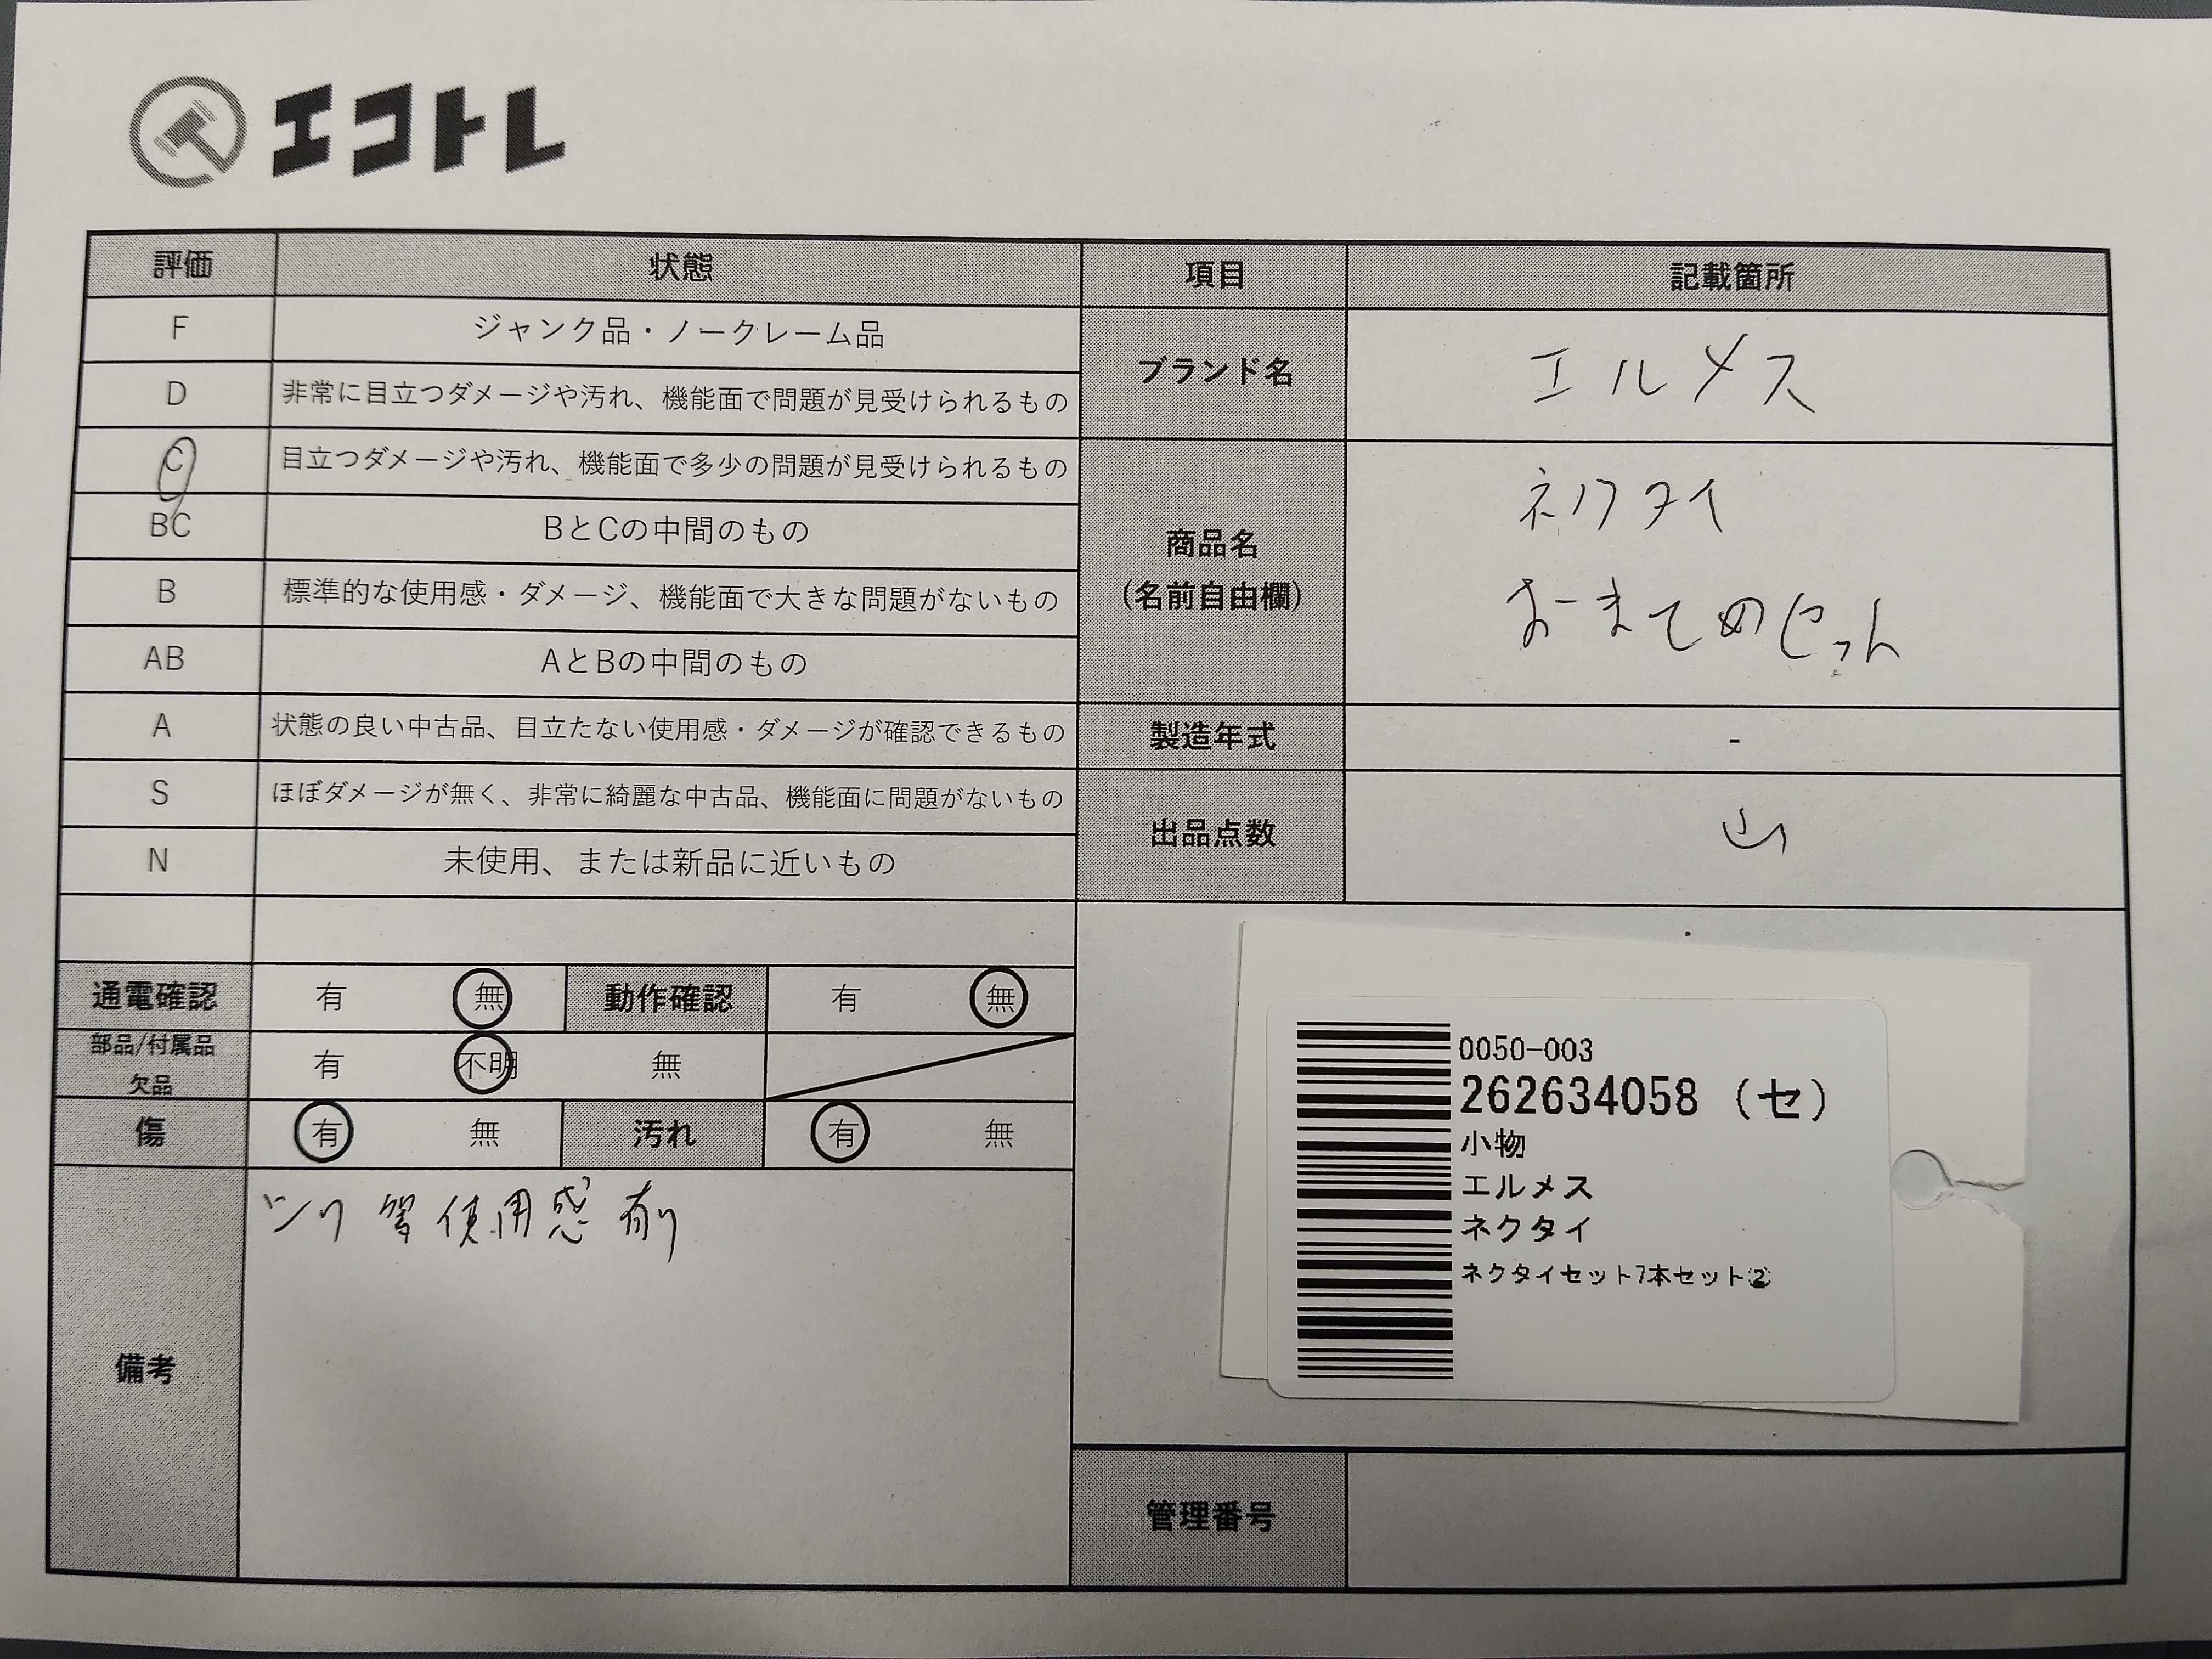 エコトレ
評価 状態 項目 記載箇所
F ジャンク品・ノークレーム品
D 非常に目立つダメージや汚れ、機能面で問題が見受けられるもの
ブランド名 エルメス
C 目立つダメージや汚れ、機能面で多少の問題が見受けられるもの
BC BとCの中間のもの
B 標準的な使用感・ダメージ、機能面で大きな問題がないもの
AB AとBの中間のもの
商品名
(名前自由欄)
ネクタイ
おまとめセット
A 状態の良い中古品、目立たない使用感・ダメージが確認できるもの
製造年式 -
S ほぼダメージが無く、非常に綺麗な中古品、機能面に問題がないもの
N 未使用、または新品に近いもの
出品点数
通電確認 有 無 動作確認 有 無
部品/付属品
欠品
有 不明 無
傷 有 無 汚れ 有 無
備考
シワ等使用感有り
0050-003
262634058 (セ)
小物
エルメス
ネクタイ
ネクタイセット7本セット②
管理番号